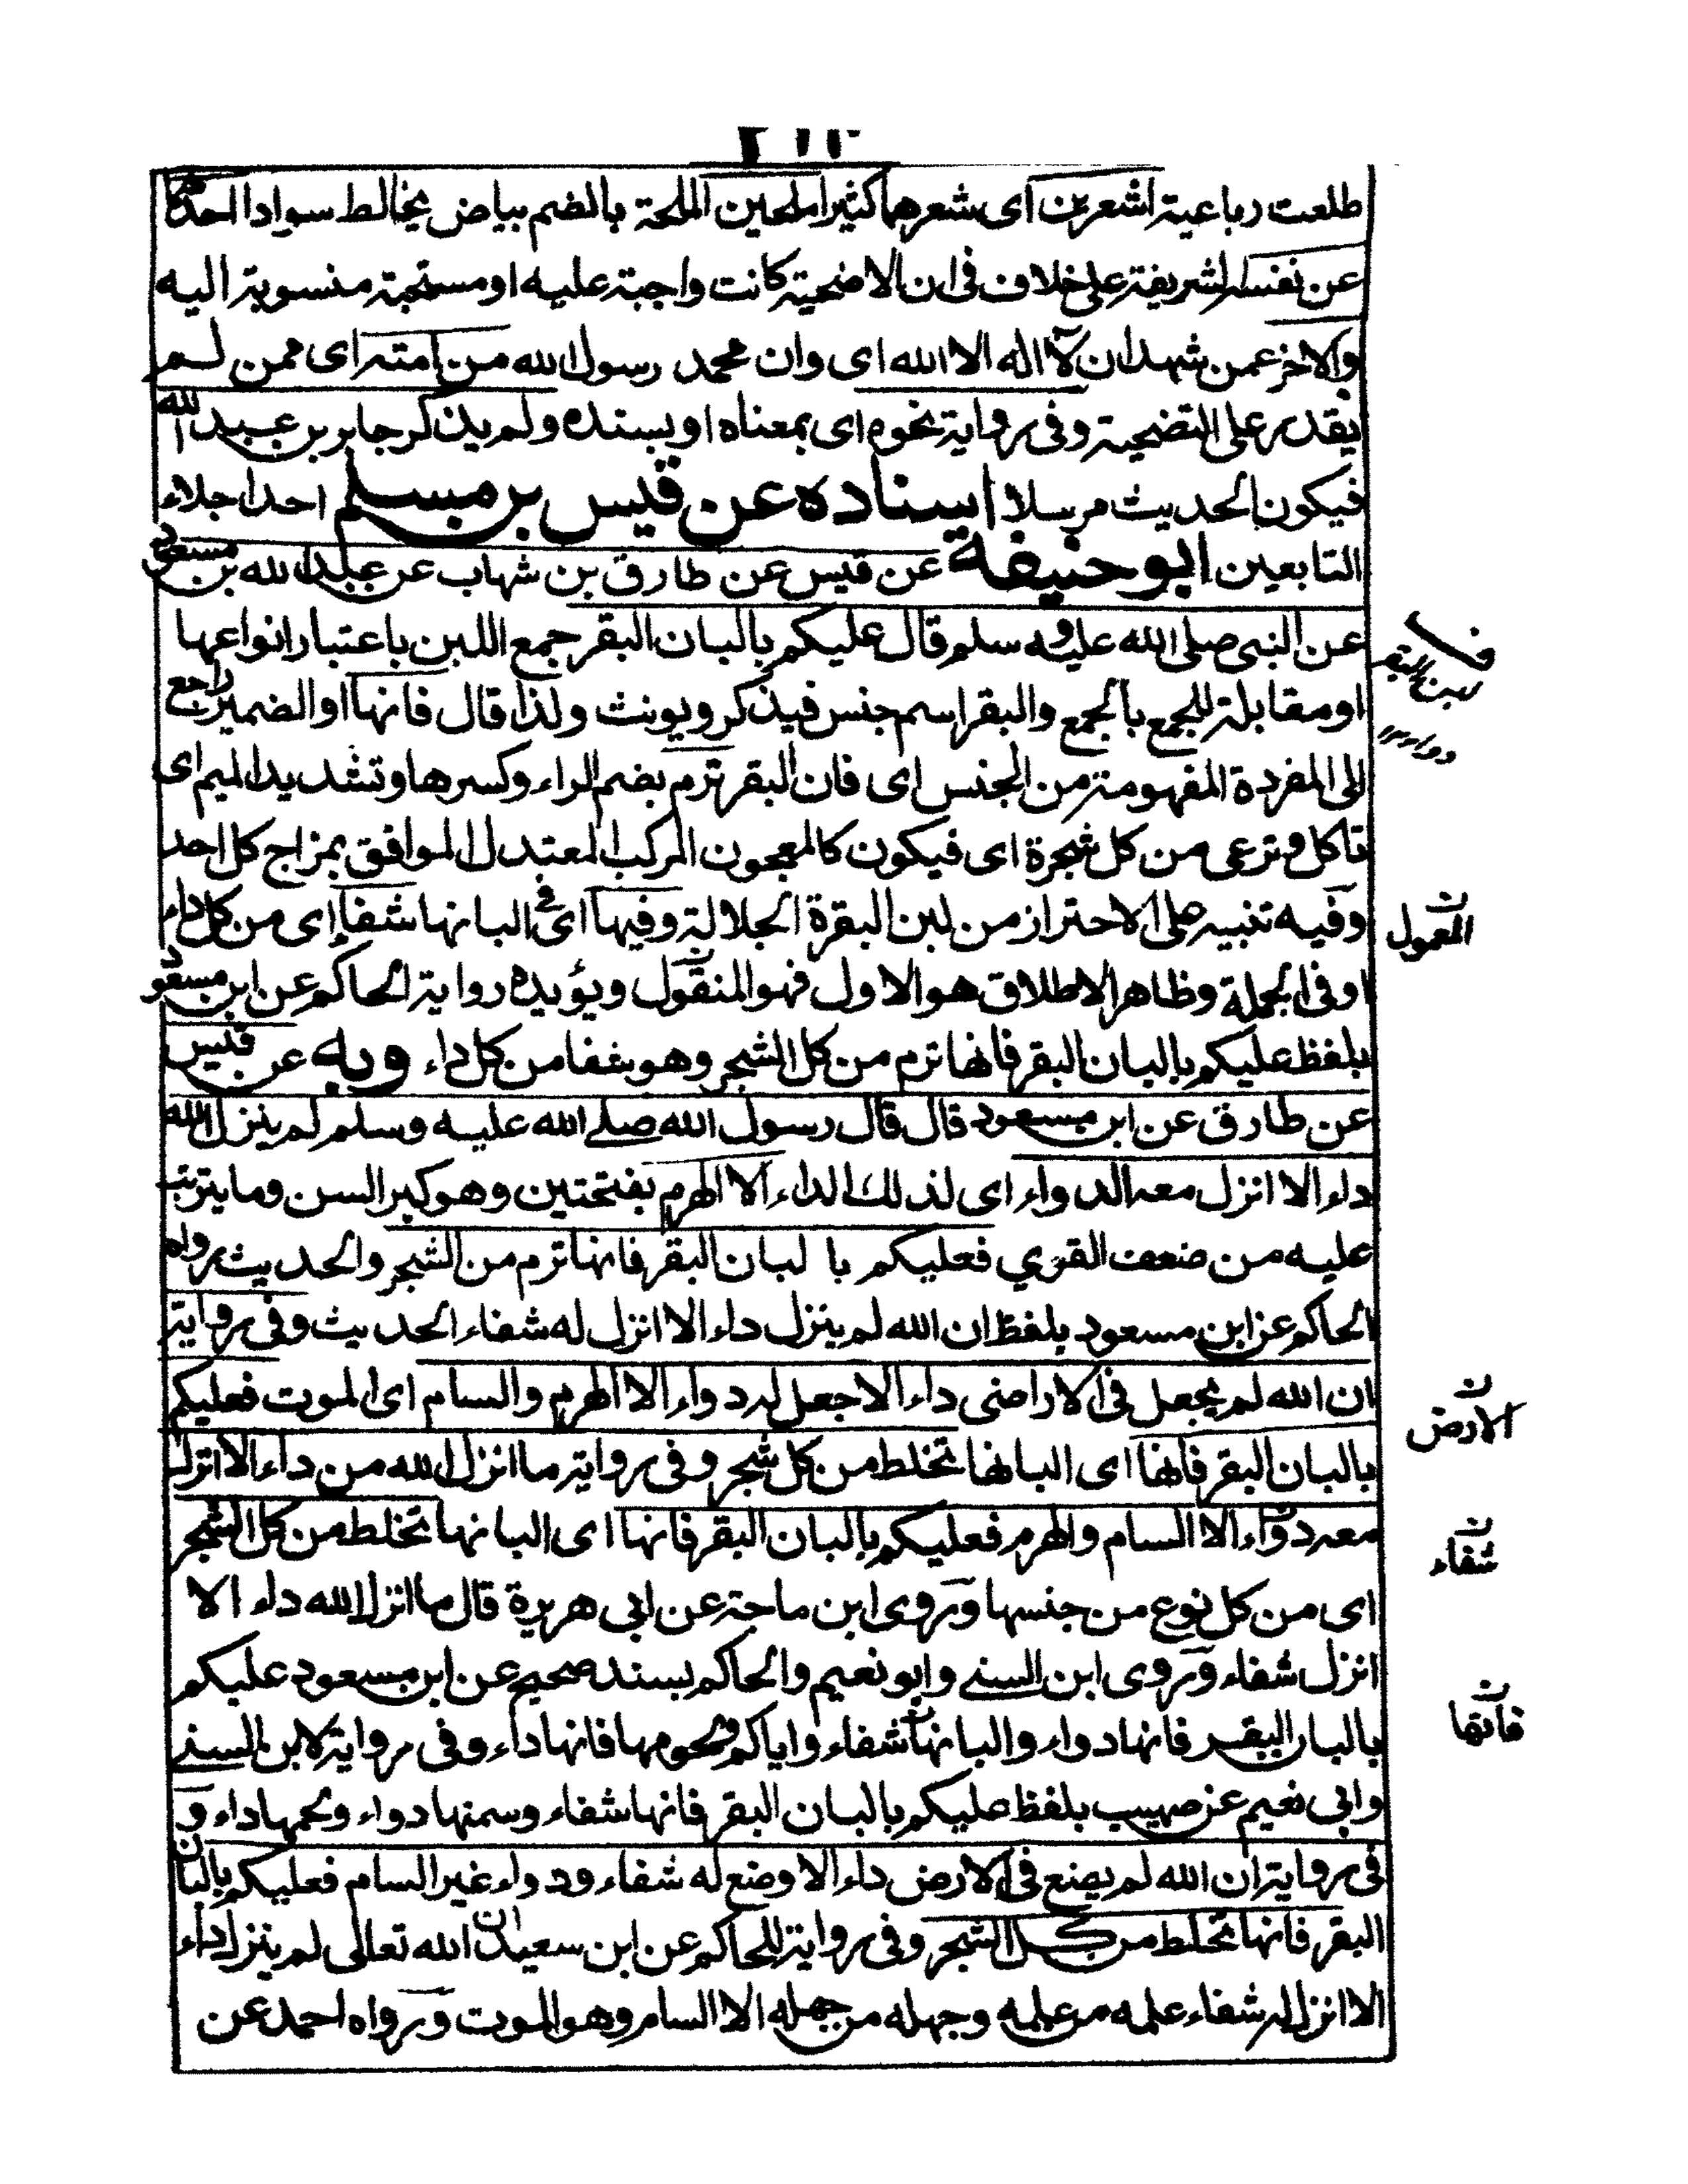 طلعت رباعيته اشعرين اى شعرهما كثير املحين الملحة بالضم بياض يخالط سوادا احدهما
عن نفسه الشريفة على خلاف فى ان الاضحية كانت واجبة عليه او مستحبة منسوبة اليه
والاخر عمن شهد ان لا اله الا الله اى وان محمد رسول الله من امته اى ممن لم
يقدر على التضحية وفى رواية نحوه اى بمعناه او بسنده ولم يذكر جابر بن عبد الله
فيكون الحديث مرسلا اسناده عن قيس بن مسلم احد اجلاء
التابعين ابو حنيفة عن قيس عن طارق بن شهاب عن عبد الله بن مسعود
عن النبى صلى الله عليه وسلم قال عليكم بالبان البقر جمع اللبن باعتبار انواعها
او مقابلة للجمع بالجمع والبقر اسم جنس فيذكر ويونث ولذا قال فانها او الضمير راجع
الى المفردة المفهومة من الجنس اى فان البقر ترم بضم الراء وكسرها وتشديد الميم اى
تاكل وترعى من كل شجرة اى فيكون كالمعجون المركب المعتدل الموافق بمزاج كل احد
وفيه تنبيه على الاحتراز من لبن البقرة الجلالة وفيها اى فى البانها شفاء اى من كل داء
او فى الجملة وظاهر الاطلاق هو الاول فهو المنقول ويؤيده رواية الحاكم عن ابن مسعود
بلفظ عليكم بالبان البقر فانها ترم من كل الشجر وهو شفا من كل داء وبه عن قيس
عن طارق عن ابن مسعود قال قال رسول الله صلى الله عليه وسلم لم ينزل الله
داء الا انزل معه الدواء اى لذلك الداء الا الهرم بفتحتين وهو كبر السن وما يترتب
عليه من ضعف القوي فعليكم با لبان البقر فانها ترم من الشجر والحديث رواه
الحاكم عن ابن مسعود بلفظ ان الله لم ينزل داء الا انزل له شفاء الحديث وفى رواية
ان الله لم يجعل فى الاراضى داء الا جعل له دواء الا الهرم والسام اى الموت فعليكم
بالبان البقر فانها اى البانها تخلط من كل شجر وفى رواية ما انزل الله من داء الا انزل
معه دواء الا السام والهرم فعليكم بالبان البقر فانها اى البانها تخلط من كل الشجر
اى من كل نوع من جنسها وروى ابن ماجة عن ابى هريرة قال ما انزل الله داء الا
انزل شفاء وروى ابن السنے وابو نعيم والحاكم بسند صحيح عن ابن مسعود عليكم
بالبان البقر فانها دواء والبانها شفاء واياكم ولحومها فانها داء وفى رواية لابن السنے
وابى نعيم عن صهيب بلفظ عليكم بالبان البقر فانها شفاء وسمنها دواء ولحمها داء و
فى رواية ان الله لم يضع فى الارض داء الا وضع له شفاء ودواء غير السام فعليكم بالبان
البقر فانها تخلط من كل الشجر وفى رواية للحاكم عن ابن سعيد ان الله تعالى لم ينزل داء
الا انزل له شفاء علمه من علمه وجهله من جهله الا السام وهو الموت ورواه احمد عن
لبن البقر
دواء
المعمول
الارض
شفاء
فانها